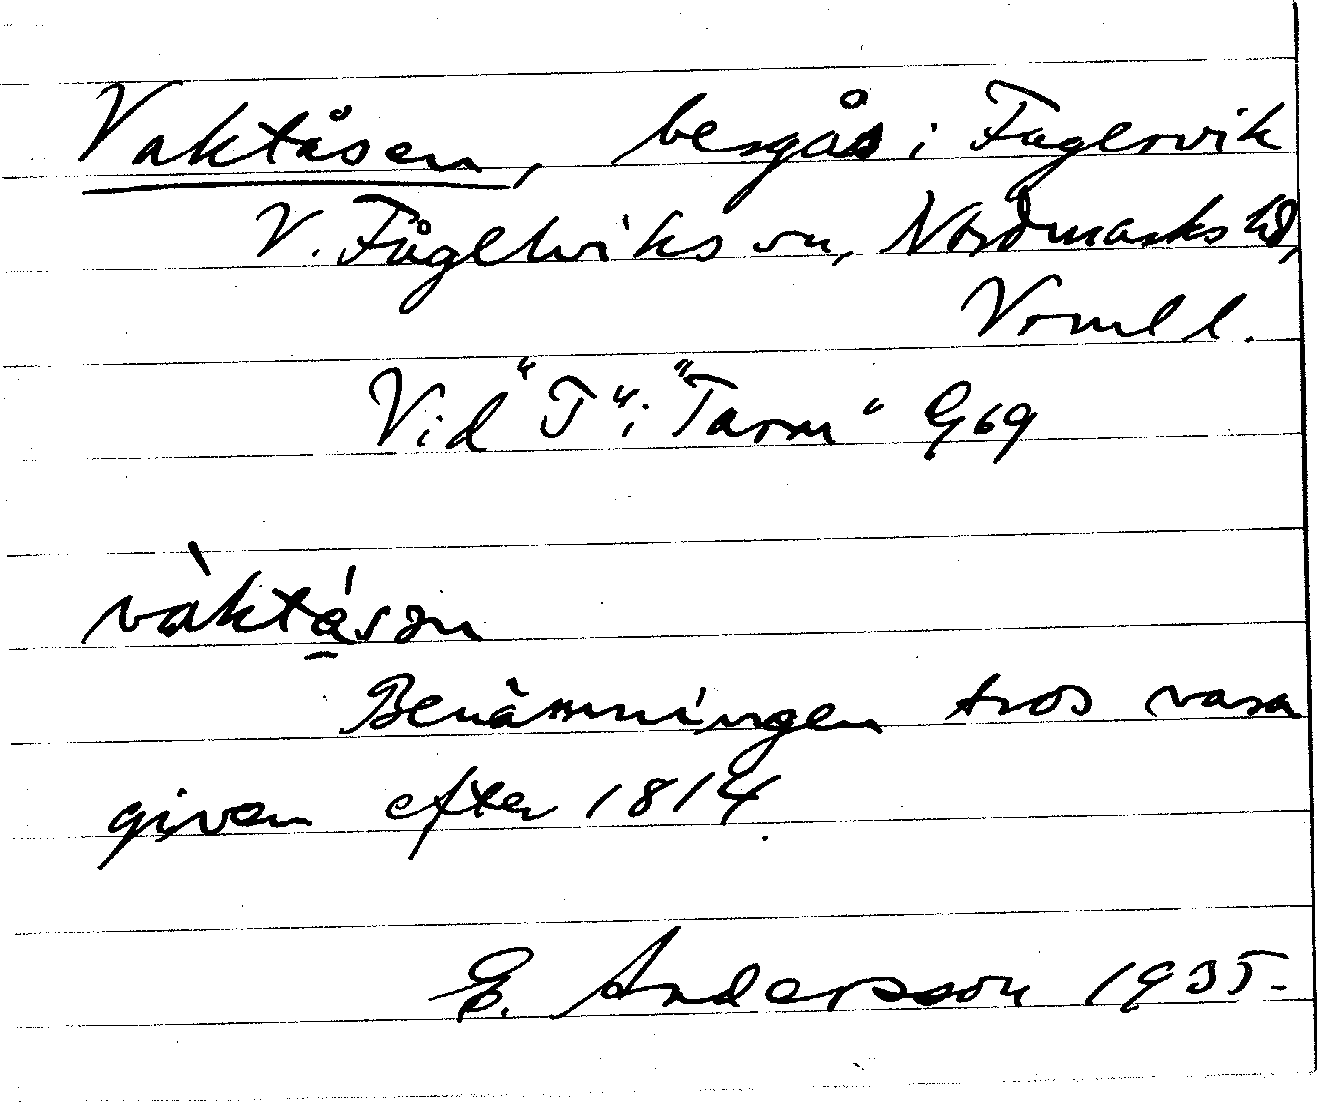 Vaktåsen, bergås i Fagervik
V. Fågelviks sn, Nordmarks hd,
Vrml l.
Vid "T" i "Tarm" G69
vàktá̱sən
Benämningen tros vara
given efter 1814.
E. Andersson 1935.